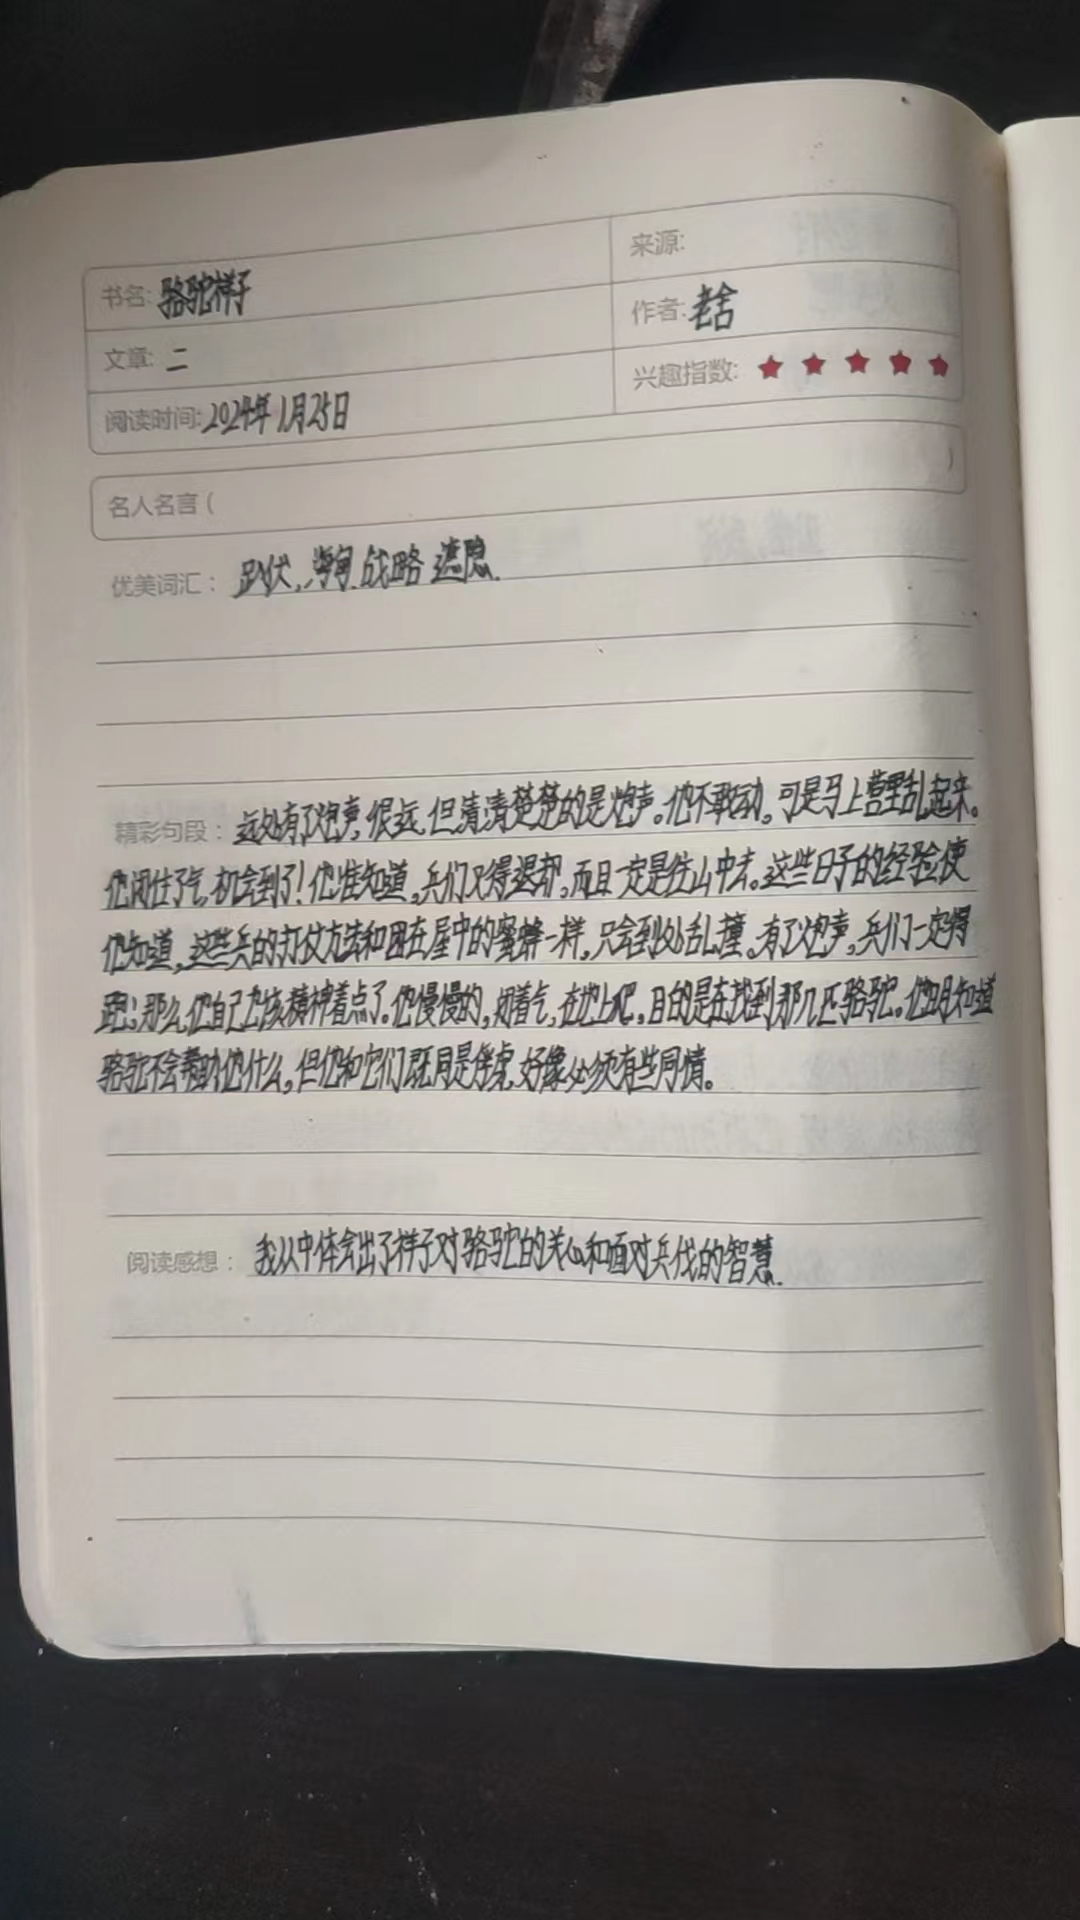 书名: 骆驼祥子
来源:
作者: 老舍
文章: 二
兴趣指数: ★ ★ ★ ★ ★
阅读时间: 2024年1月25日
名人名言 ( )
优美词汇: 趴伏, 战略 遮隐.
精彩句段: 远处有了炮声,很远,但清清楚楚的是炮声。他不敢动。可是马上营里乱起来。
他闭住了气,机会到了!他准知道,兵们又得退却,而且一定是往山中去。这些日子的经验使
他知道,这些兵的打仗方法和困在屋中的蜜蜂一样,只会到处乱撞。有了炮声,兵们一定得
跑;那么,他自己也该精神着点了。他慢慢的,闭着气,在地上爬,目的是在找到那几匹骆驼。他明知道
骆驼不会帮助他什么,但他和它们既同是俘虏,好像必须有些同情。
阅读感想: 我从中体会出了祥子对骆驼的关心和面对兵伐的智慧.